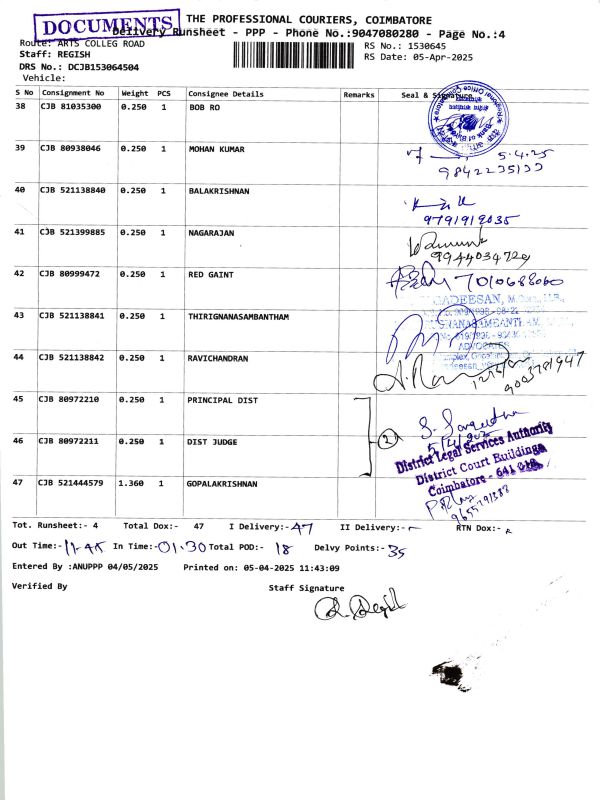 DOCUMENTS
THE PROFESSIONAL COURIERS, COIMBATORE
Delivery Runsheet - PPP - Phone No.:9047080280 - Page No.:4
Route: ARTS COLLEG ROAD
RS No.: 1530645
Staff: REGISH
RS Date: 05-Apr-2025
DRS No.: DCJB153064504
Vehicle:
S No Consignment No Weight PCS Consignee Details Remarks Seal & Signature
38 CJB 81035300 0.250 1 BOB RO
39 CJB 80938046 0.250 1 MOHAN KUMAR
5.4.25
9842235133
40 CJB 521138840 0.250 1 BALAKRISHNAN
9791919035
41 CJB 521399885 0.250 1 NAGARAJAN
9944034729
42 CJB 80999472 0.250 1 RED GAINT
7010688060
43 CJB 521138841 0.250 1 THIRIGNANASAMBANTHAM
ADVOCATES
44 CJB 521138842 0.250 1 RAVICHANDRAN
9003781947
45 CJB 80972210 0.250 1 PRINCIPAL DIST
2
46 CJB 80972211 0.250 1 DIST JUDGE
District Legal Services Authority
District Court Buildings
Coimbatore - 641 018.
47 CJB 521444579 1.360 1 GOPALAKRISHNAN
Tot. Runsheet:- 4 Total Dox:- 47 I Delivery:- 47 II Delivery:- RTN Dox:-
Out Time:- 11-45 In Time:- 01.30 Total POD:- 18 Delvy Points:- 35
Entered By :ANUPPP 04/05/2025 Printed on: 05-04-2025 11:43:09
Verified By Staff Signature